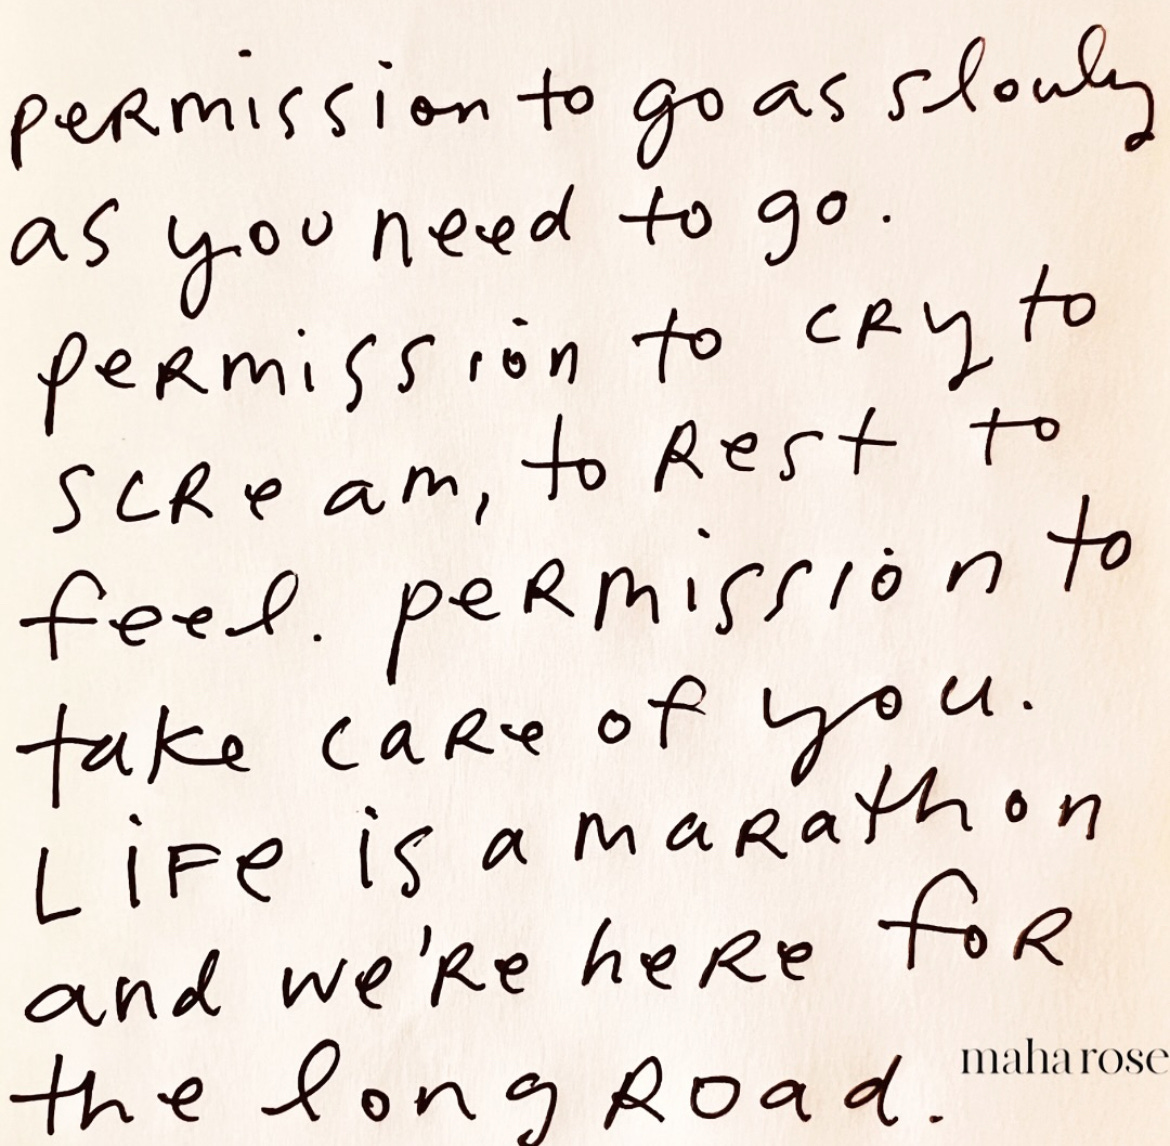 permission to go as slowly
as you need to go.
permission to cry to
scream, to Rest to
feel. permission to
take care of you.
Life is a marathon
and we're here for
the long Road.
maha rose